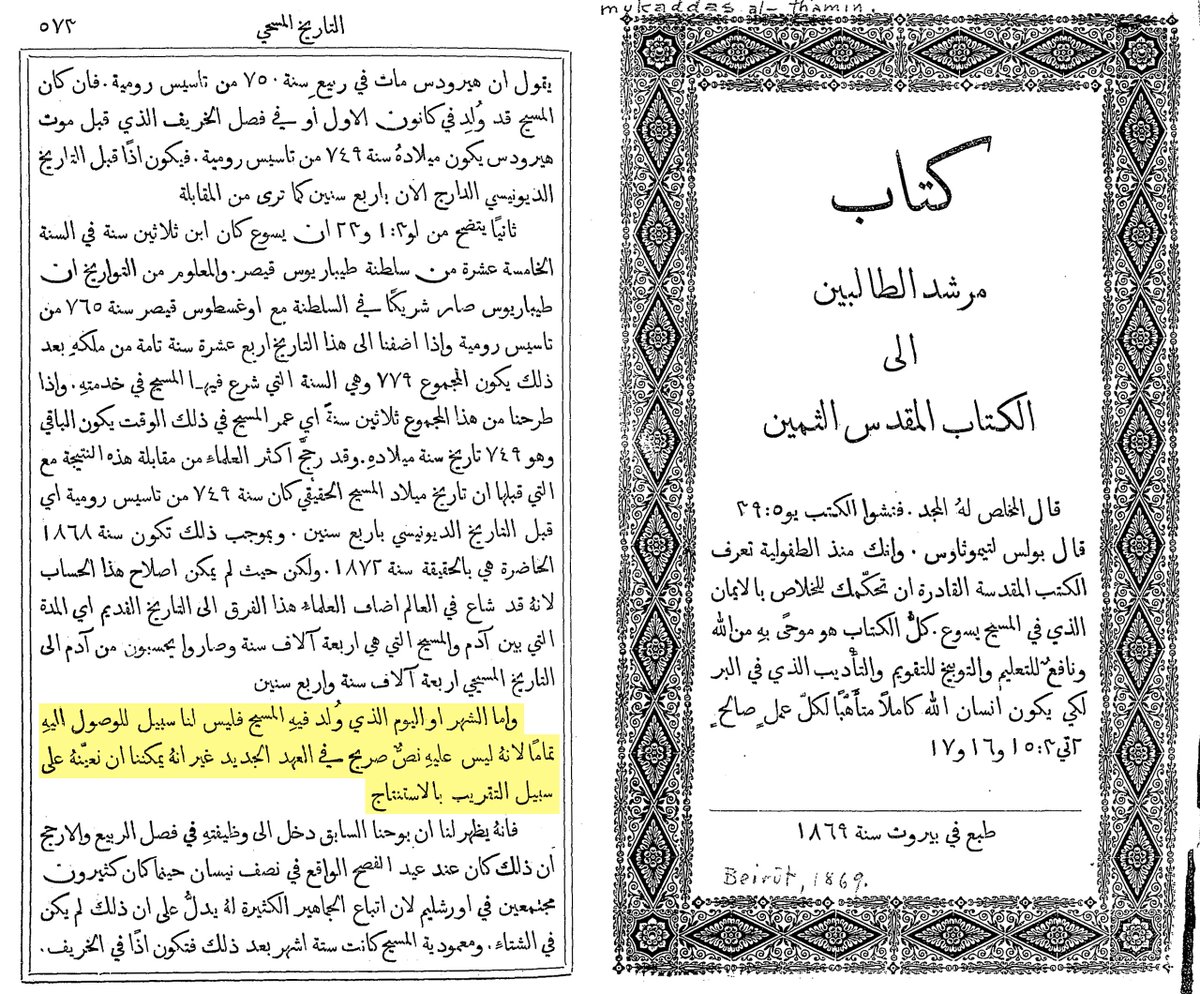 التاريخ المسحي ٥٧٣
يقول ان هيرودس مات في ربيع سنة ٧٥٠ من تاسيس رومية. فان كان
المسيح قد وُلِد في كانون الاول أو في فصل الخريف الذي قبل موت
هيرودس يكون ميلادهُ سنة ٧٤٩ من تاسيس رومية. فيكون اذًا قبل التاريخ
الديونيسي الدارج الان باربع سنين كما ترى من المقابلة
ثانيًا يتضح من لو٣:١ و٢٣ ان يسوع كان ابن ثلاثين سنة في السنة
الخامسة عشرة من سلطنة طيباريوس قيصر. والمعلوم من التواريخ ان
طيباريوس صار شريكًا في السلطنة مع اوغسطوس قيصر سنة ٧٦٥ من
تاسيس رومية وإذا اضفنا الى هذا التاريخ اربع عشرة سنة تامة من ملكهِ بعد
ذلك يكون المجموع ٧٧٩ وهي السنة التي شرع فيها المسيح في خدمتهِ. وإذا
طرحنا من هذا المجموع ثلاثين سنةً اي عمر المسيح في ذلك الوقت يكون الباقي
وهو ٧٤٩ تاريخ سنة ميلادهِ. وقد رجَّح أكثر العلماء من مقابلة هذه النتيجة مع
التي قبلها ان تاريخ ميلاد المسيح الحقيقي كان سنة ٧٤٩ من تاسيس رومية اي
قبل التاريخ الديونيسي باربع سنين. وبموجب ذلك تكون سنة ١٨٦٨
الحاضرة هي بالحقيقة سنة ١٨٧٢. ولكن حيث لم يمكن اصلاح هذا الحساب
لانهُ قد شاع في العالم اضاف العلماء هذا الفرق الى التاريخ القديم اي المدة
التي بين آدم والمسيح التي هي اربعة آلاف سنة وصاروا يحسبون من آدم الى
التاريخ المسيحي اربعة آلاف سنة واربع سنين
وإما الشهر او اليوم الذي وُلد فيهِ المسيح فليس لنا سبيل للوصول اليهِ
تمامًا لانهُ ليس عليهِ نصٌّ صريح في العهد الجديد غير انهُ يمكننا ان نعيّنهُ على
سبيل التقريب بالاستنتاج
فانهُ يظهر لنا ان يوحنا السابق دخل الى وظيفتهِ في فصل الربيع والارجح
ان ذلك كان عند عيد الفصح الواقع في نصف نيسان حينما كان كثيرون
مجتمعين في اورشليم لان اتباع الجماهير الكثيرة لهُ يدلُّ على ان ذلك لم يكن
في الشتاء. ومعمودية المسيح كانت ستة اشهر بعد ذلك فتكون اذًا في الخريف.
mukaddas al-thamin.
كتاب
مرشد الطالبين
الى
الكتاب المقدس الثمين
قال المخلص لهُ المجد. فتشوا الكتب يو٥:٣٩
قال بولس لتيموثاوس. وإنك منذ الطفولية تعرف
الكتب المقدسة القادرة ان تحكّمك للخلاص بالايمان
الذي في المسيح يسوع. كلُّ الكتاب هو موحًى بهِ من الله
ونافعٌ للتعليم والتوبيخ للتقويم والتأديب الذي في البر
لكي يكون انسان الله كاملًا متأهبًا لكلّ عملٍ صالحٍ
٢تي٣:١٥ و١٦ و١٧
طبع في بيروت سنة ١٨٦٩
Beirūt, 1869.